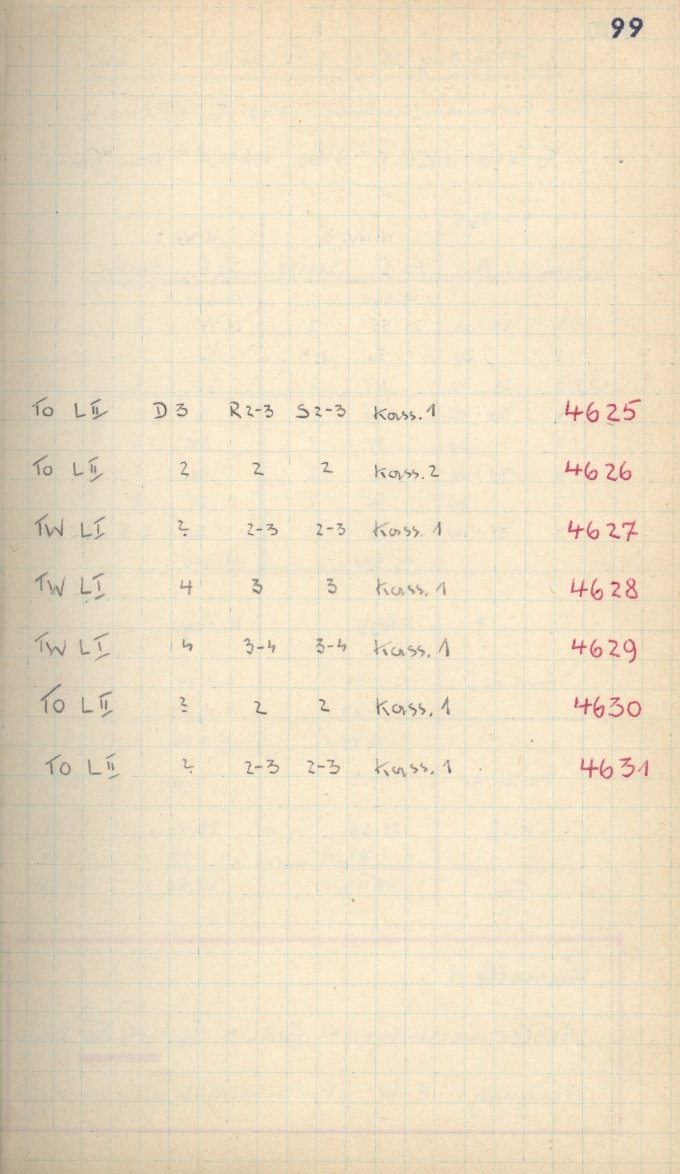 99
To L II D 3 R 2-3 S 2-3 Kass. 1 4625
To L II 2 2 2 Kass. 2 4626
TW L I 2 2-3 2-3 Kass. 1 4627
TW L I 4 3 3 Kass. 1 4628
TW L I 4 3-4 3-4 Kass. 1 4629
To L II 2 2 2 Kass. 1 4630
To L II 2 2-3 2-3 Kass. 1 4631